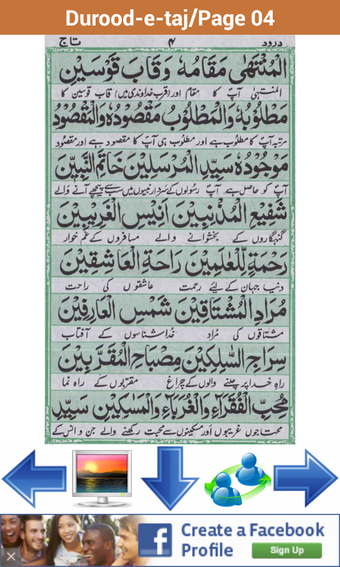 Durood-e-taj/Page 04
درود ۴ تاج
الْمُنْتَهٰی مَقَامُهٗ وَقَابَ قَوْسَیْنِ
المنتہیٰ آپؐ کا مقام اور اقرب خداوندی میں قاب قوسین کا
مَطْلُوْبُهٗ وَالْمَطْلُوْبُ مَقْصُوْدُهٗ وَالْمَقْصُوْدُ
مرتبہ آپؐ کا مطلوب ہے اور مطلوب ہی آپؐ کا مقصود ہے اور مقصود
مَوْجُوْدُهٗ سَیِّدِ الْمُرْسَلِیْنَ خَاتَمِ النَّبِیِّیْنَ
آپؐ کو حاصل ہے آپؐ رسولوں کے سردار نبیوں میں سب سے پیچھے آنے والے
شَفِیْعِ الْمُذْنِبِیْنَ اَنِیْسِ الْغَرِیْبِیْنَ
گنہگاروں کے بخشوانے والے مسافروں کے غم خوار
رَحْمَةٍ لِّلْعٰلَمِیْنَ رَاحَةِ الْعَاشِقِیْنَ
دنیا جہان کے لئے رحمت عاشقوں کی راحت
مُرَادِ الْمُشْتَاقِیْنَ شَمْسِ الْعَارِفِیْنَ
مشتاقوں کی مراد خدا شناسوں کے آفتاب
سِرَاجِ السّٰلِکِیْنَ مِصْبَاحِ الْمُقَرَّبِیْنَ
راہِ خدا پر چلنے والوں کے چراغ مقربوں کے راہ نما
مُحِبِّ الْفُقَرَآءِ وَالْغُرَبَآءِ وَالْمَسٰکِیْنَ سَیِّدِ
محتاجوں غریبوں اور مسکینوں سے محبت رکھنے والے جن و انس کے
Create a Facebook
Profile
Sign Up